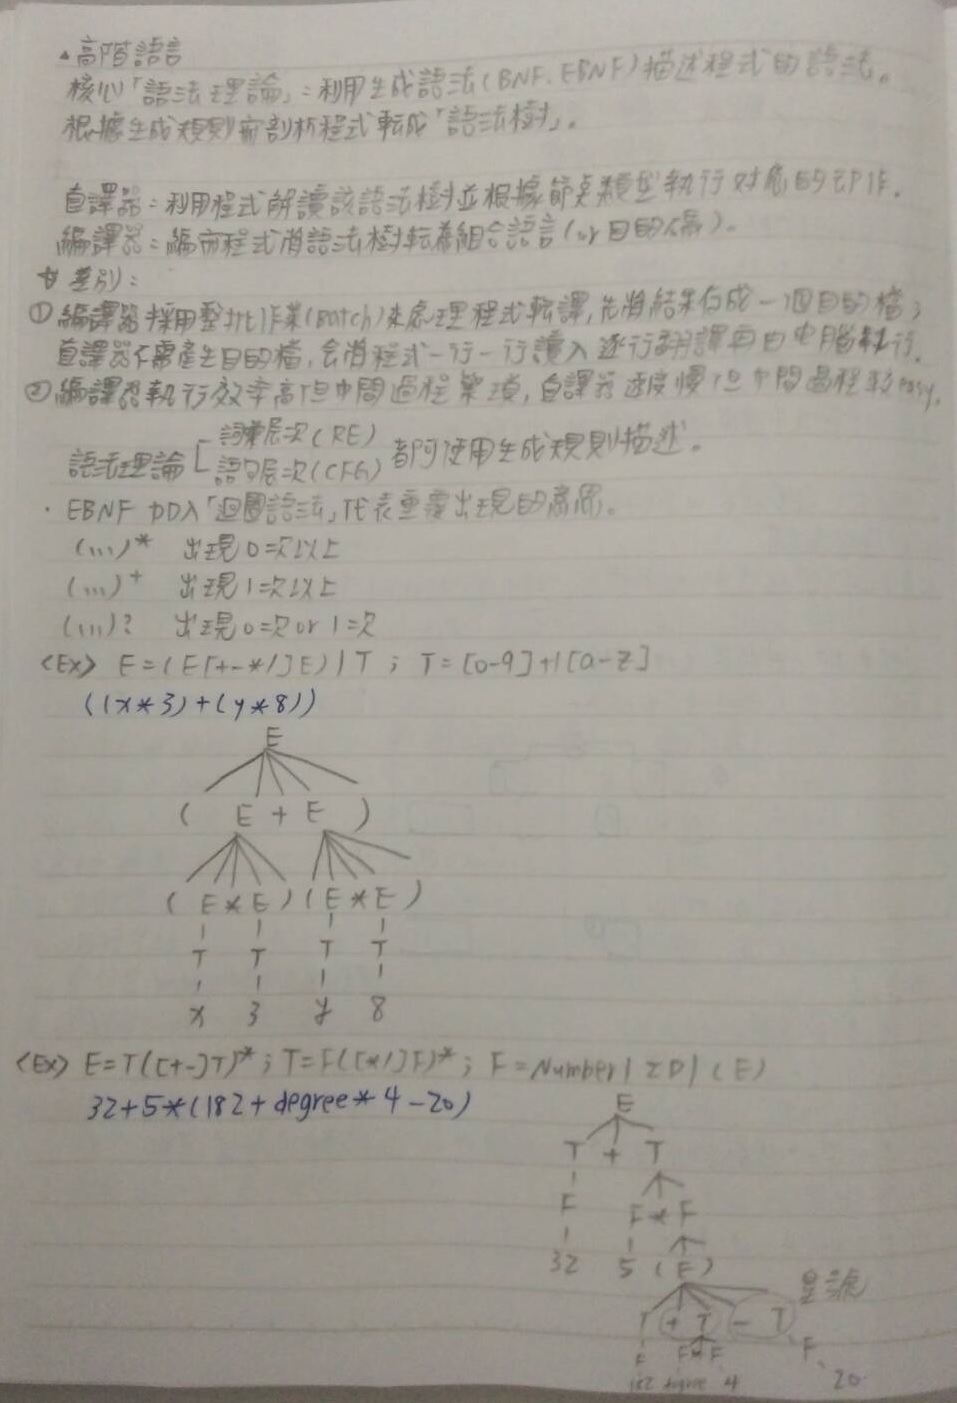 ▲高階語言
核心「語法理論」:利用生成語法(BNF、EBNF)描述程式的語法。
根據生成規則 剖析程式転成「語法樹」。
直譯器:利用程式解讀該語法樹並根據節點類型執行対應的動作.
編譯器: 程式將語法樹転為組合語言(or目的檔)。
差別:
① 編譯器採用整批作業(Batch)來處理程式転譯,先將結果存成一個目的檔;
直譯器不需產生目的檔,會將程式一行一行讀入逐行翻譯再由电腦執行.
② 編譯器執行效率高但中間過程繁瑣,直譯器速度慢但中間過程較easy.
詞彙層次(RE)
語法理論 都可使用生成規則描述。
語句層次(CFG)
· EBNF加入「迴圈語法」代表重覆出現的意思。
(...)* 出現0次以上
(...)+ 出現1次以上
(...)? 出現0次or 1次
<Ex> E=(E[+-*/]E)|T ; T=[0-9]+|[a-z]
((x*3)+(y*8))
E
( E + E )
( E * E ) ( E * E )
T T T T
x 3 y 8
<Ex> E=T([+-]T)* ; T=F([*/]F)* ; F=Number|ID|(E)
32+5*(182+degree*4-20)
E
T + T
F F * F
32 5 (E)
星號
T + T - T
F F * F F
182 degree 4 20